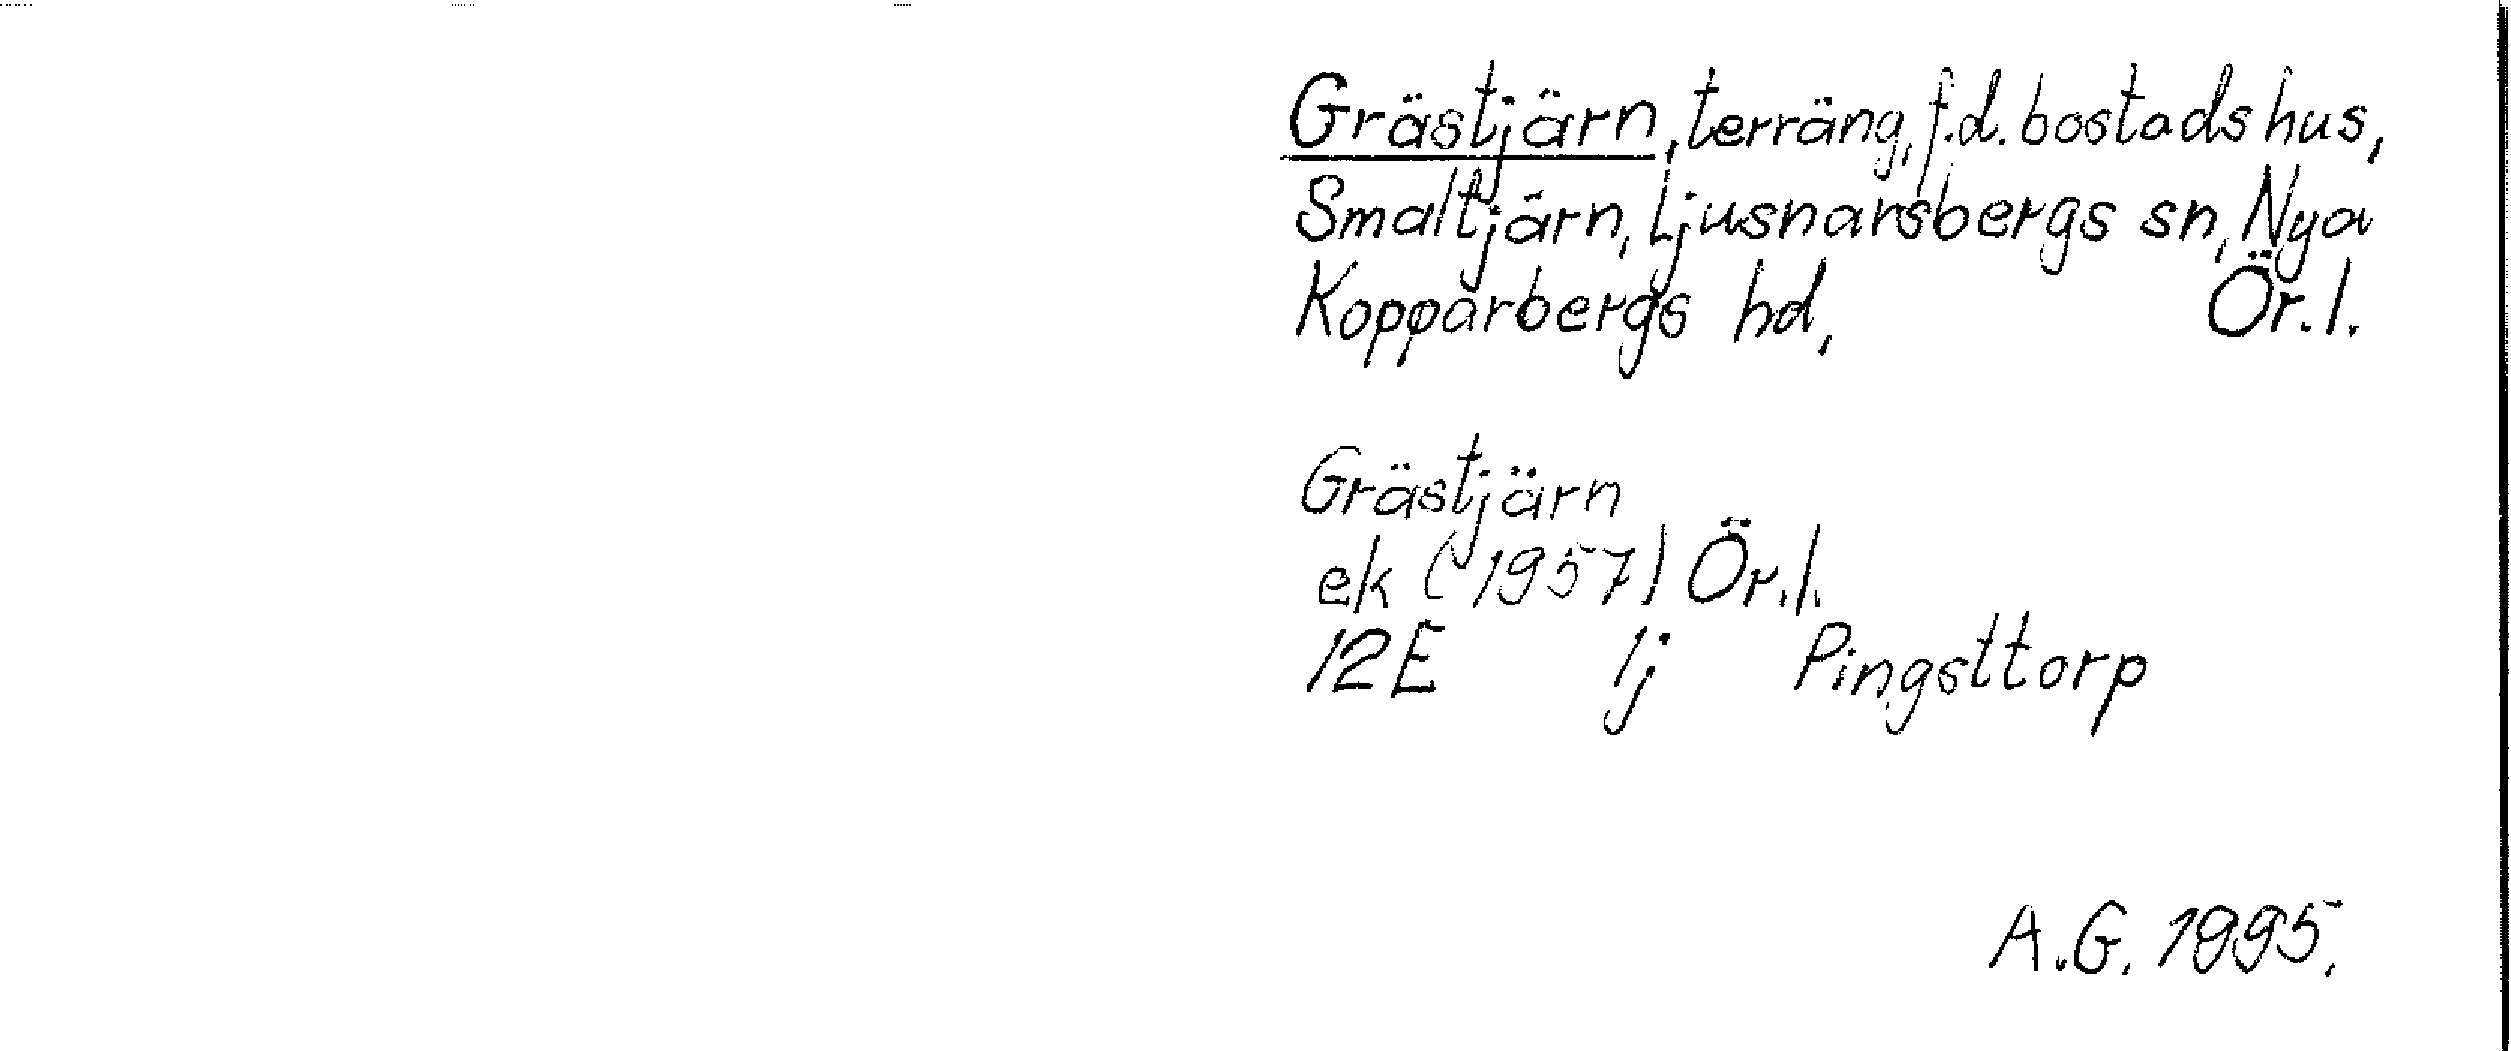 Grästjärn, terräng, f.d. bostadshus,
Smaltjärn, Ljusnarsbergs sn, Nya
Kopparbergs hd, Ör. l.
Grästjärn
ek (1957) Ör. l.
12E 1j Pingsttorp
A.G. 1995.